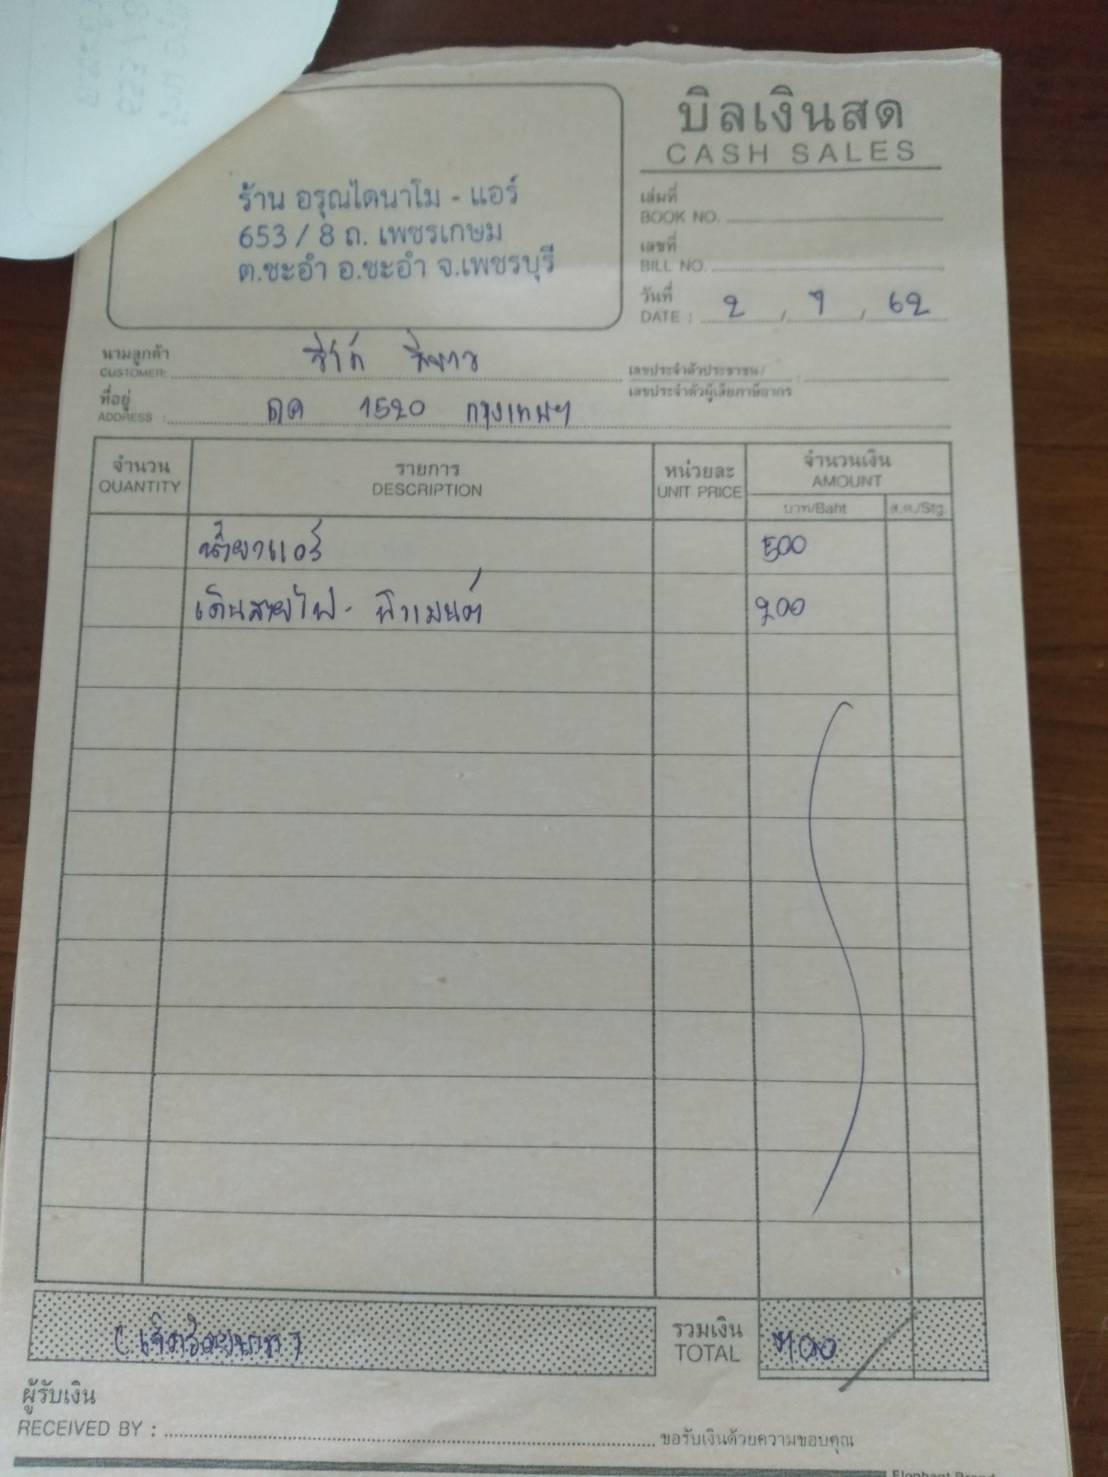 บิลเงินสด
CASH SALES
ร้าน อรุณไดนาโม - แอร์
653 / 8 ถ. เพชรเกษม
ต.ชะอำ อ.ชะอำ จ.เพชรบุรี
เล่มที่
BOOK NO.
เลขที่
BILL NO.
วันที่
DATE : 2 / 7 / 62
นามลูกค้า
CUSTOMER:
เลขประจำตัวประชาชน/
เลขประจำตัวผู้เสียภาษีอากร
ที่อยู่
ADDRESS : 1520 กรุงเทพฯ
จำนวน รายการ หน่วยละ จำนวนเงิน
QUANTITY DESCRIPTION UNIT PRICE AMOUNT
บาท/Baht ส.ต./Stg.
น้ำยาแอร์ 500
เดินสายไฟ - 200
(เจ็ดร้อยบาท) รวมเงิน 700
TOTAL
ผู้รับเงิน
RECEIVED BY :
ขอรับเงินด้วยความขอบคุณ
Elephant Brand